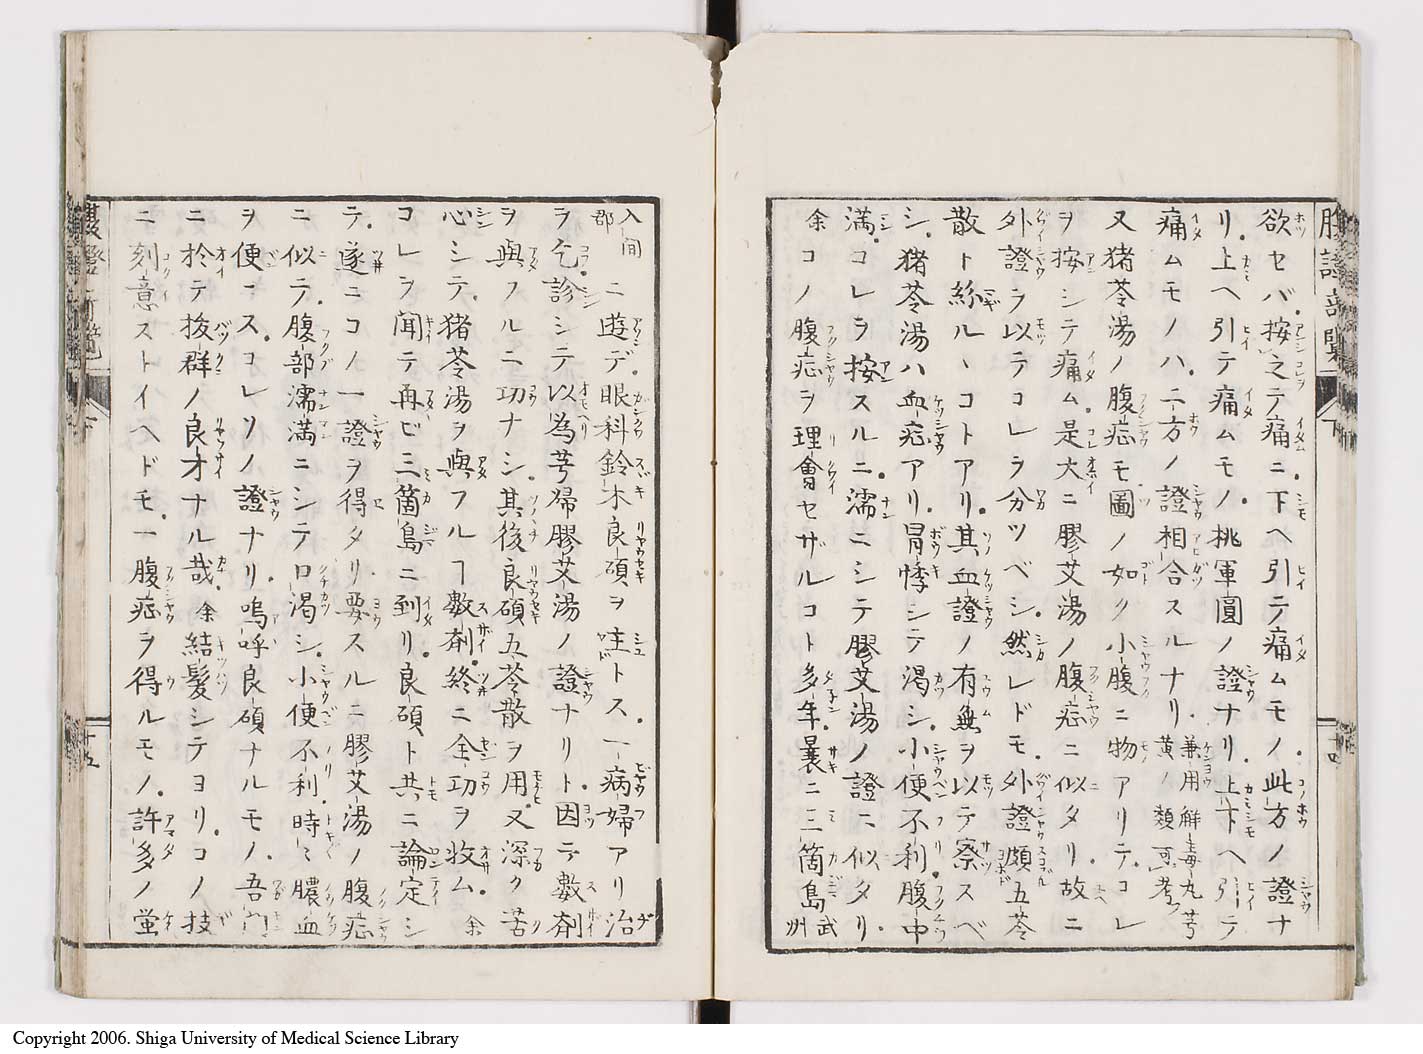 欲セバ按之テ痛ニ下ヘ引テ痛ムモノ此方ノ證ナ
リ上ヘ引テ痛ムモノ桃軍圓ノ證ナリ上下ヘ引テ
痛ムモノハ二方ノ證相合スルナリ兼用解毒丸芎黄ノ類可考
又猪苓湯ノ腹症モ圖ノ如ク小腹ニ物アリテコレ
ヲ按シテ痛ム是大ニ膠艾湯ノ腹症ニ似タリ故ニ
外證ヲ以テコレヲ分ツベシ然レドモ外證頗五苓
散ト紛ルヽコトアリ其血證ノ有無ヲ以テ察スベ
シ猪苓湯ハ血症アリ冒悸シテ渇シ小便不利腹中
満コレヲ按スルニ濡ニシテ膠艾湯ノ證ニ似タリ
余コノ腹症ヲ理會セザルコト多年曩ニ三箇島武州
入間郡ニ遊デ眼科鈴木良碩ヲ主トス一病婦アリ治
ヲ乞診シテ以為芎帰膠艾湯ノ證ナリト因テ數剤
ヲ與フルニ功ナシ其後良碩五苓散ヲ用又深ク苦
心シテ猪苓湯ヲ與フルヿ數剤終ニ全功ヲ收ム余
コレヲ聞テ再ビ三箇島ニ到リ良碩ト共ニ論定シ
テ遂ニコノ一證ヲ得タリ要スルニ膠艾湯ノ腹症
ニ似テ腹部濡満ニシテ口渇シ小便不利時〻膿血
ヲ便スコレソノ證ナリ嗚呼良碩ナルモノ吾門
ニ於テ抜群ノ良才ナル哉余結髪シテヨリコノ技
ニ刻意ストイヘドモ一腹症ヲ得ルモノ許多ノ螢
下
十四
十五
Copyright 2006. Shiga University of Medical Science Library